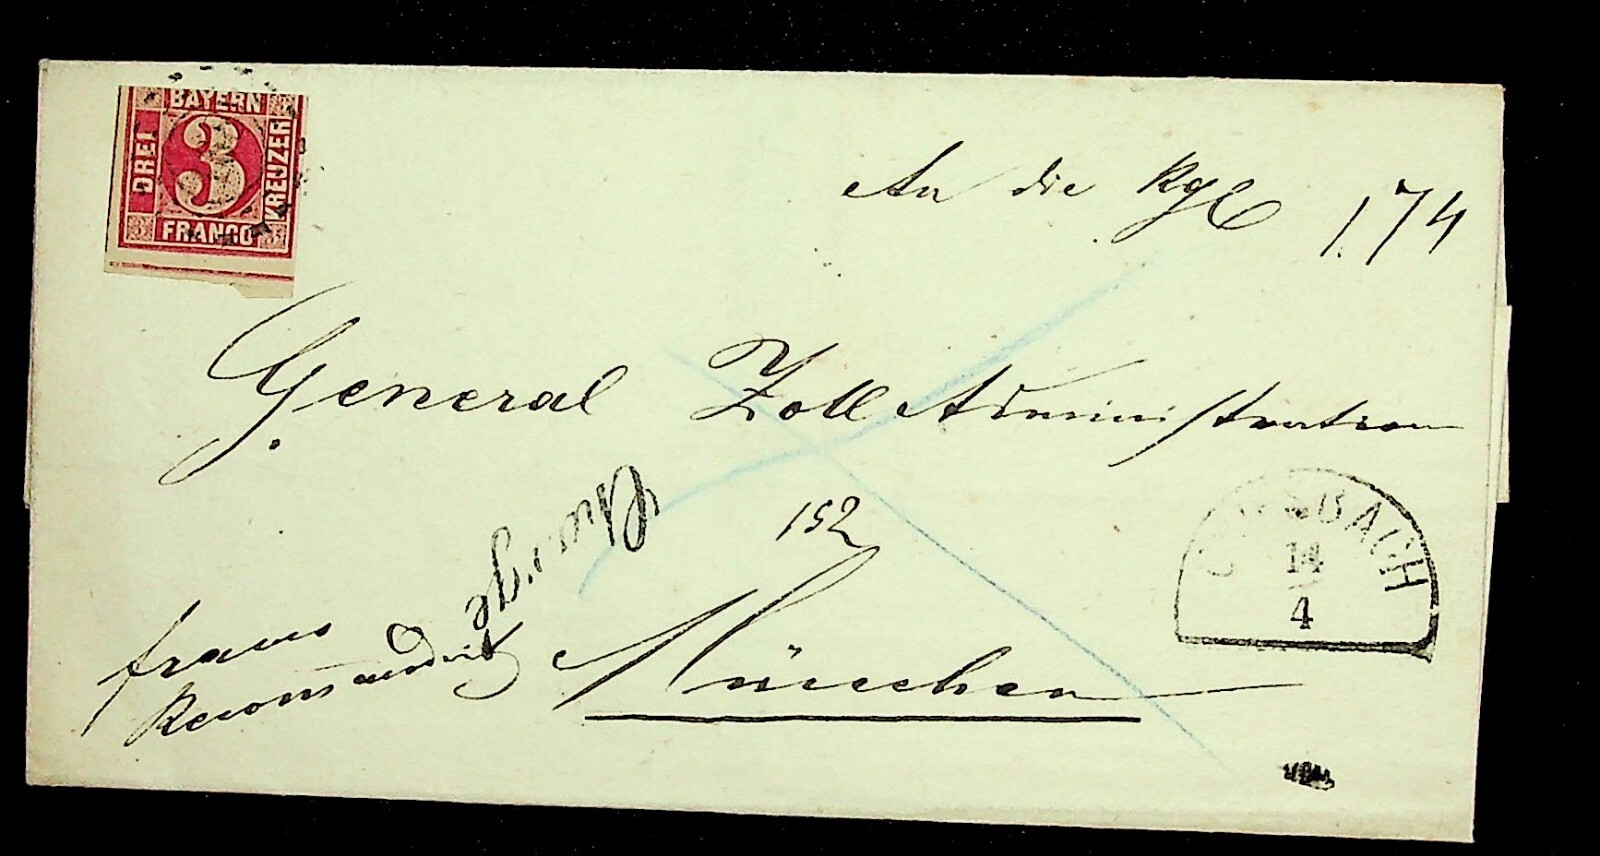 BAYERN
DREI 3 KREUZER
FRANCO
An die Kgl 174
General Zoll Administration
Chargé
152
franco
Recommandirt München
14
4